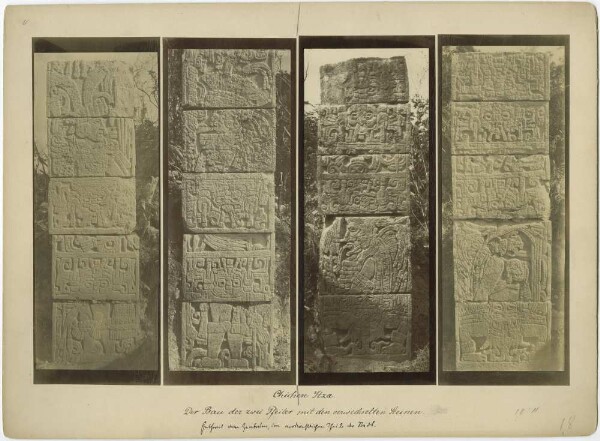 Chichen Itza.
Der Bau der zwei Pfeiler mit den verwechselten Steinen.
im nordöstlichen Theile der Stadt.
18